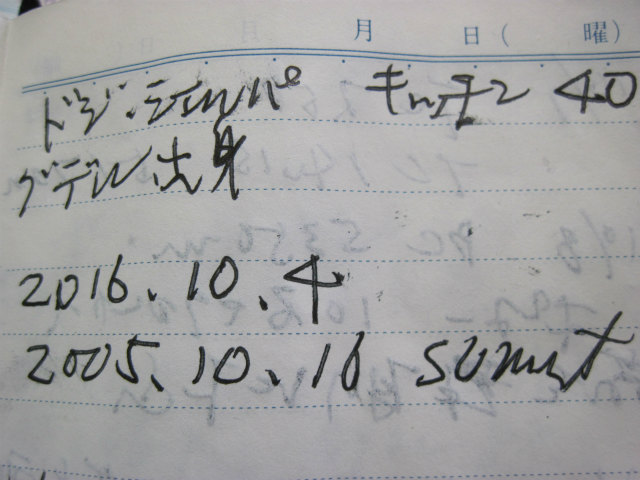 月 日 ( 曜)
ドジ・ティルパ キッチン 40
グデル出身
2016.10.4
2005.10.16 sumit